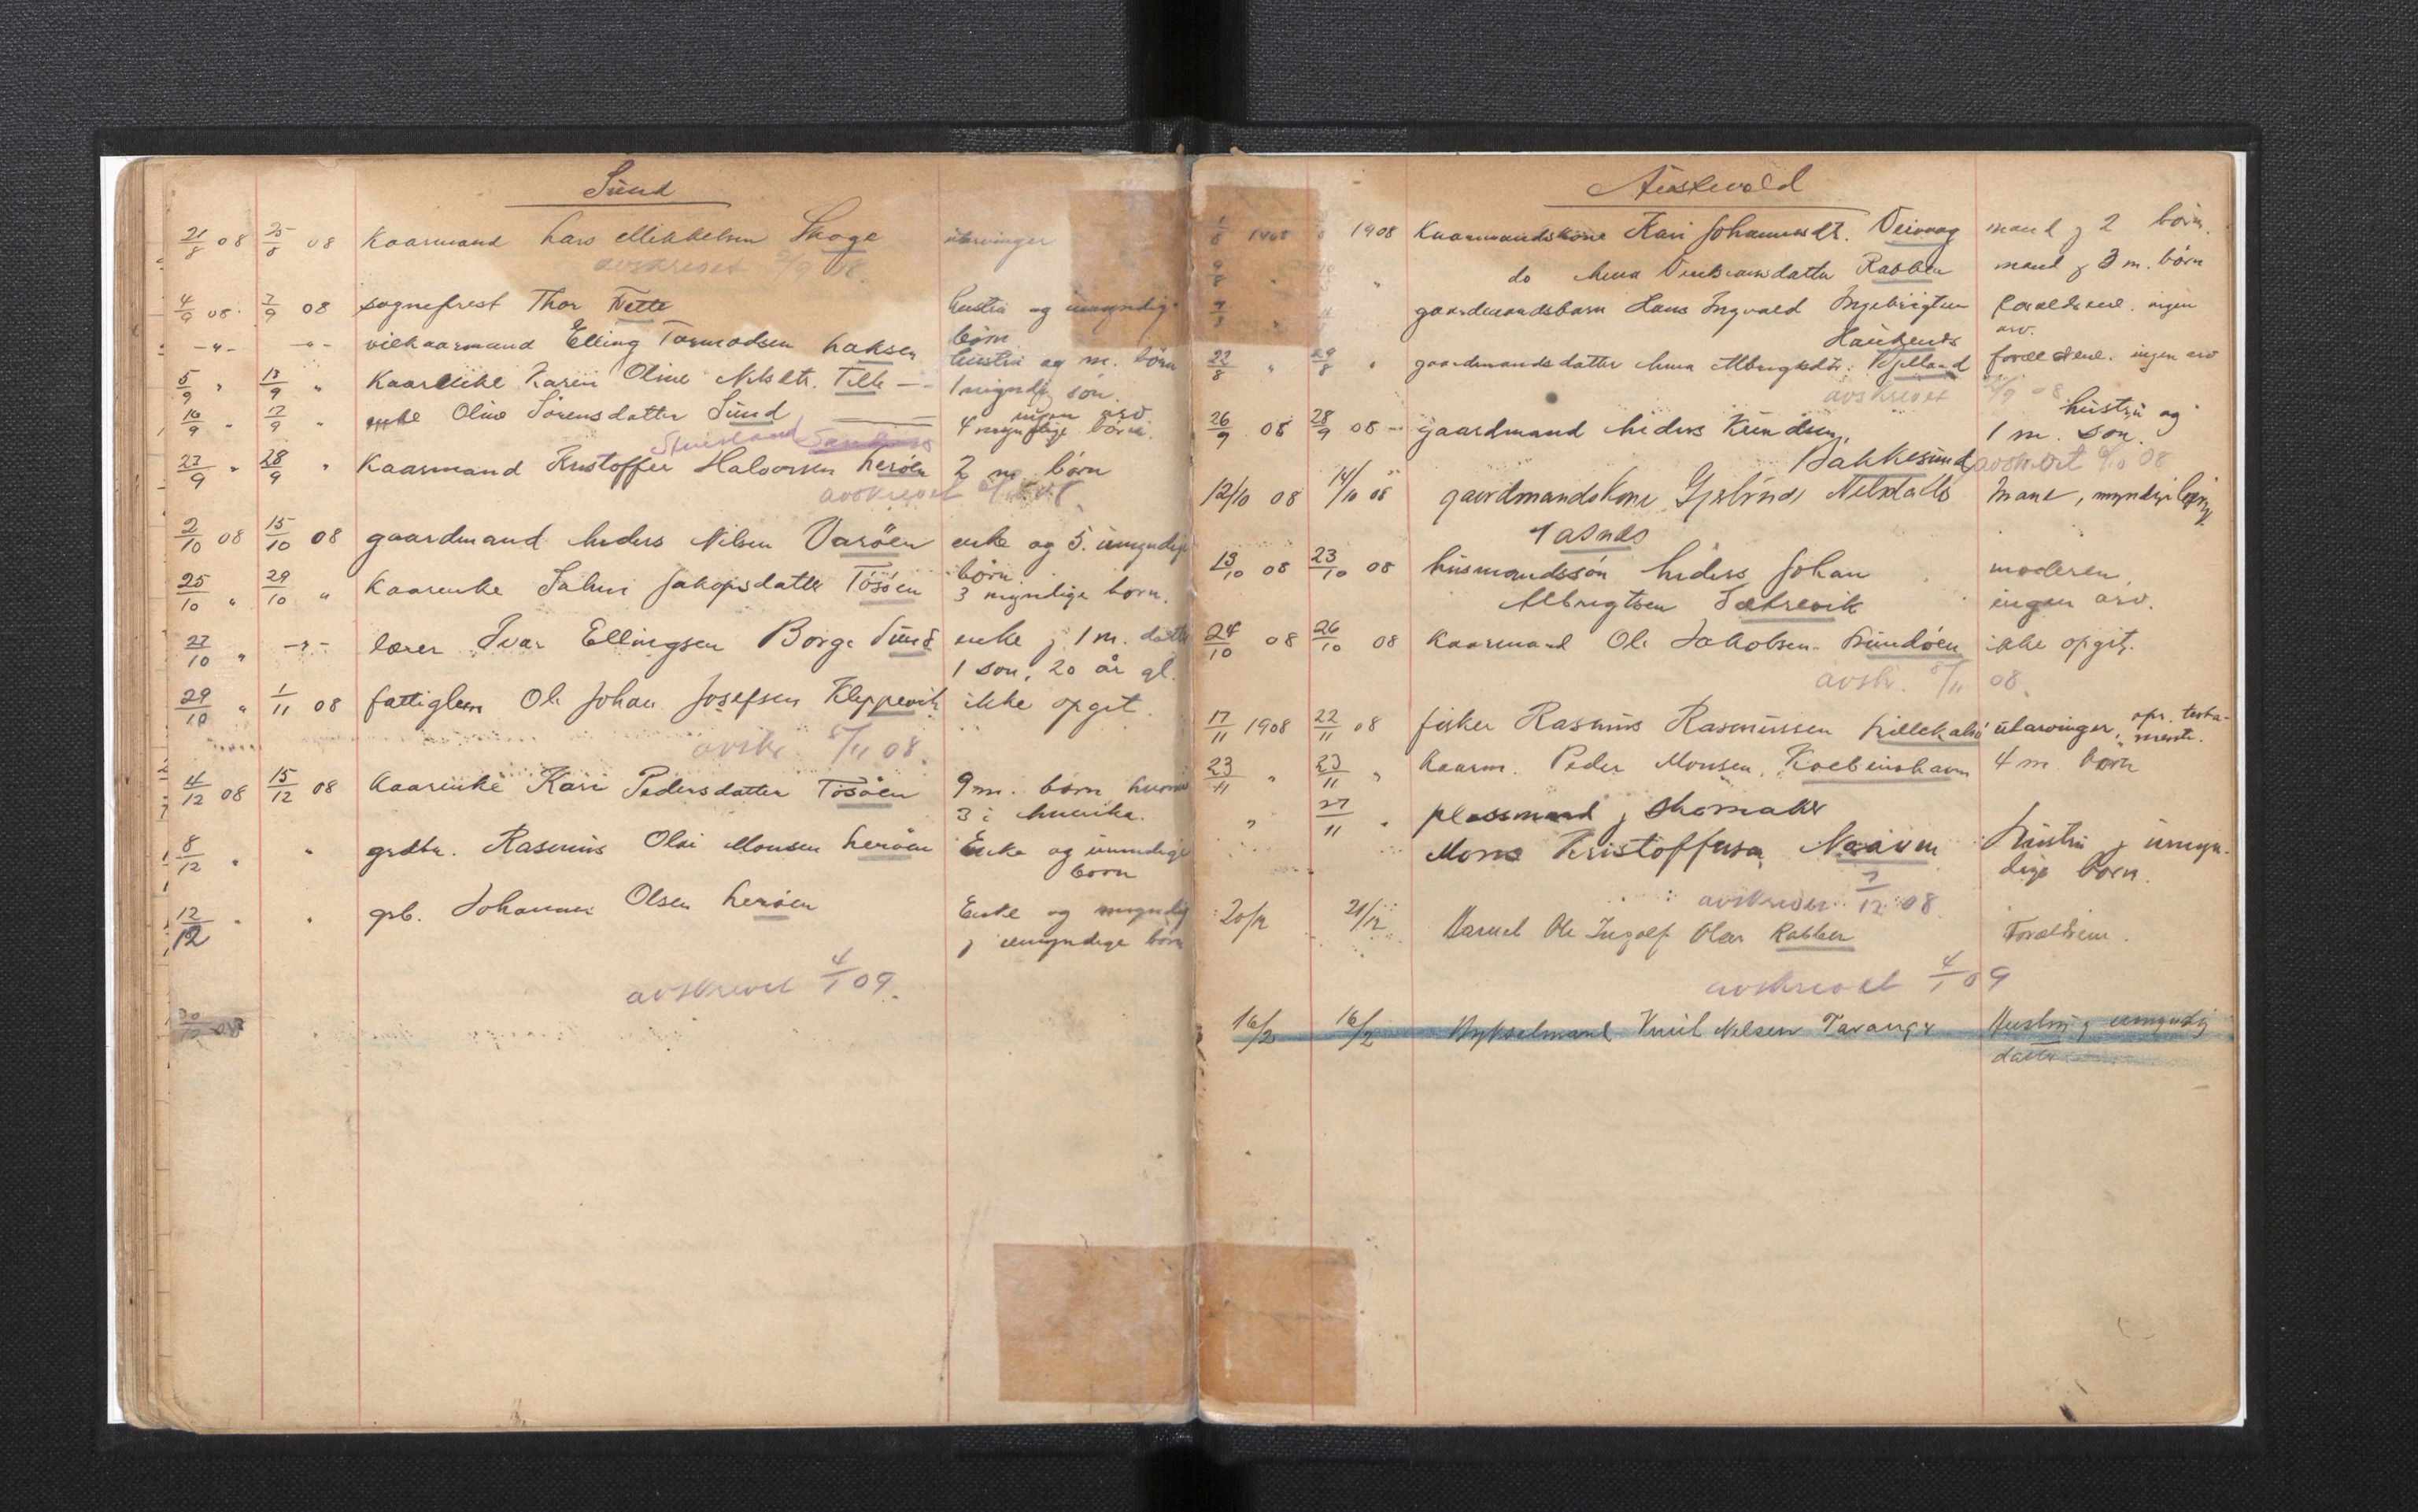 Sund
21/8 08 25/8 08 Kaarmand Lars Mikkelsen Skoge utarvinger
avskrevet 2/9 08
4/9 08 7/9 08 sogneprest Thor Tette hustru og umyndige
børn
-"- -"- vilkaarmand Elling Tormodsen Laksen hustru og m. børn
5/9 " 13/9 " Kaarenke Karen Oline Nilsdtr. Telle 1 myndig søn.
ingen arv
16/9 " 17/9 " enke Oline Sørensdatter Sund 4 myndige børn.
27/9 " 28/9 " Kaarmand Kristoffer Halvorsen Lerøen 2 m. børn
avskrevet
2/10 08 15/10 08 gaardmand Anders Nilsen Varøen enke og 5. umyndige
børn.
25/10 " 29/10 " Kaarenke Jakopsdatter Tøsøen 3 myndige børn.
27/10 " -"- lærer Ivar Ellingsen Borge Sund enke j 1 m. datter
1 søn, 20 år gl.
29/10 " 1/11 08 fattiglem Ole Johan Josefsen Kleppevik ikke opgit.
avskr. 5/11 08.
4/12 08 15/12 08 Kaarenke Kari Pedersdatter Tøsøen 9 m. børn hvorav
3 i Amerika.
8/12 " " grdbr. Rasmus Olai Monsen Lerøen Enke og umyndige
børn
12/12 " " grb. Johannes Olsen Lerøen Enke og myndig
j umyndige børn
avskrevet 4/1 09.
30/12 08
Austevold
1908 1908 Kaarmandskone Kari Johannesdt. Veivaag mand j 2 børn.
9/8 " " do Anna Rabben mand j 3 m. børn
" gaardmandsbarn Hans Ingvald Ingebrigtsen forældrene. ingen
Haukenes arv.
22/8 " 29/8 " gaardmandsdatter Anna Albrigtsdtr. Kjelland forældrene. ingen arv
avskrevet 2/9 08
26/9 08 28/9 08 - gaardmand Anders Knudsen, hustru og
1 m. søn.
Bakkesund avskrevet 6/10 08
12/10 08 14/10 08 gaardmandskone Gjertrud Nilsdatter mand, myndige børn
Vasnes
13/10 08 23/10 08 husmandssøn Anders Johan moderen,
Albrigtsen Sætrevik ingen arv.
24/10 08 26/10 08 Kaarmand Ole Jakobsen Drundøen ikke opgit.
avskr. 5/11 08.
17/11 1908 22/11 08 fisker Rasmus Rasmussen Lillekalsø utarvinger, opr. testa-
mente.
23/11 " 23/11 " Kaarm. Peder Monsen, Koebenhavn 4 m. børn
" 27/11 " plassmand j skomaker
Mons Kristoffersen Naaven Hustru j umyn-
dige børn.
avskrevet 7/12 08
20/12 21/12 Barnet Ole Ingolf Olsen Rabben Forældrene.
avskrevet 4/1 09
16/2 16/2 Bykselmand Knut Nelsen Tavanger Hustru j umyndig
datter